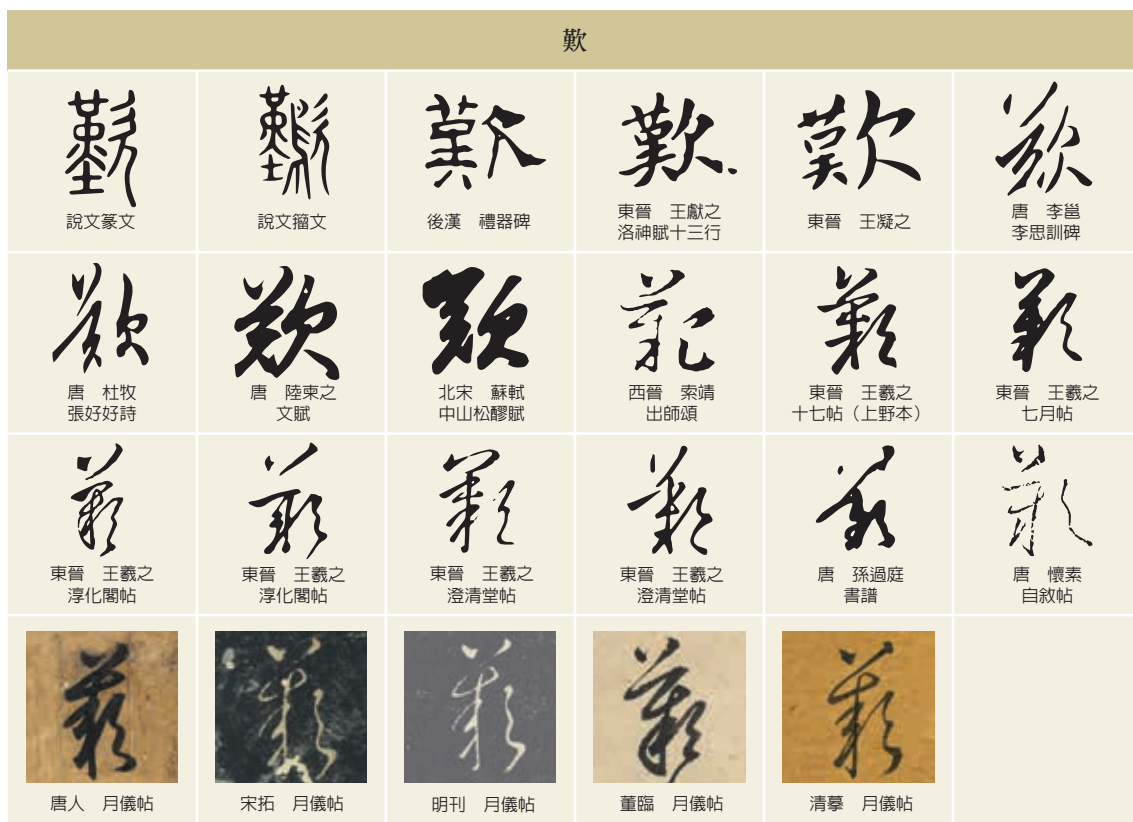 歎
說文篆文
說文籀文
後漢　禮器碑
東晉　王獻之
洛神賦十三行
東晉　王凝之
唐　李邕
李思訓碑
唐　杜牧
張好好詩
唐　陸柬之
文賦
北宋　蘇軾
中山松醪賦
西晉　索靖
出師頌
東晉　王羲之
十七帖（上野本）
東晉　王羲之
七月帖
東晉　王羲之
淳化閣帖
東晉　王羲之
淳化閣帖
東晉　王羲之
澄清堂帖
東晉　王羲之
澄清堂帖
唐　孫過庭
書譜
唐　懷素
自敘帖
唐人　月儀帖
宋拓　月儀帖
明刊　月儀帖
董臨　月儀帖
清摹　月儀帖